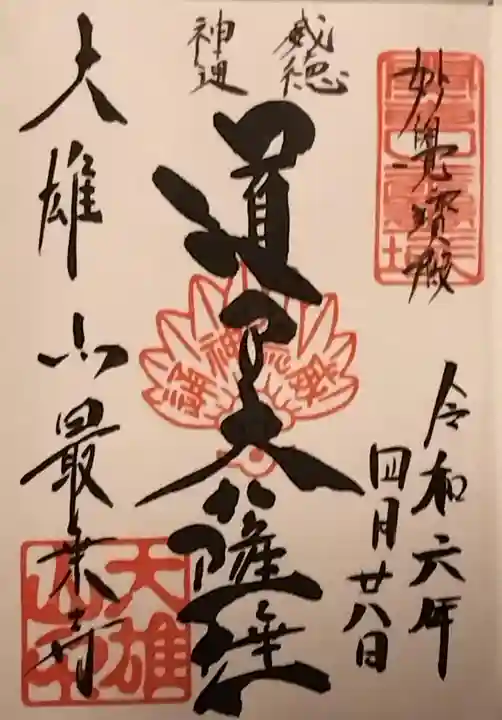 妙覚寶殿
令和六年
四月廿八日
威徳
神通
道了大薩埵
大雄山最乗寺
大雄
山